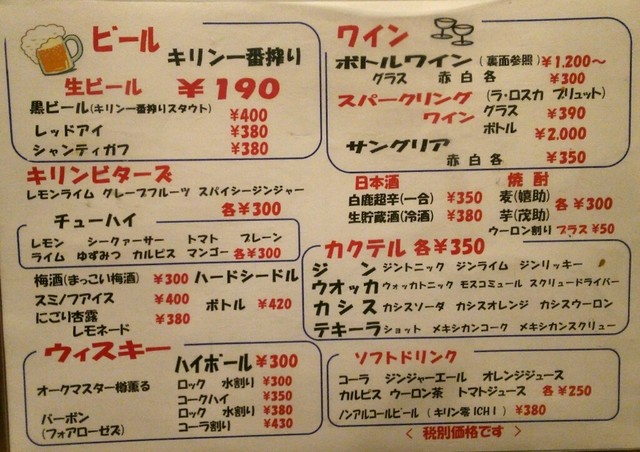 ビール
キリン一番搾り
生ビール ￥190
黒ビール(キリン一番搾りスタウト) ￥400
レッドアイ ￥380
シャンティガフ ￥380
キリンビターズ
レモンライム グレープフルーツ スパイシージンジャー
各￥300
チューハイ
レモン シークァーサー トマト プレーン
ライム ゆずみつ カルピス マンゴー 各￥300
梅酒(まっこい梅酒) ￥300
スミノフアイス ￥400
にごり杏露 ￥380
レモネード
ハードシードル
ボトル ￥420
ウィスキー
ハイボール ￥300
オークマスター樽薫る ロック 水割り ￥300
コークハイ ￥350
バーボン ロック 水割り ￥380
(フォアローゼズ) コーラ割り ￥430
ワイン
ボトルワイン (裏面参照) ￥1.200～
グラス 赤 白 各 ￥300
スパークリング (ラ・ロスカ ブリュット)
ワイン グラス ￥390
ボトル ￥2.000
サングリア
赤 白 各 ￥350
日本酒
白鹿超辛(一合) ￥350
生貯蔵酒(冷酒) ￥380
焼酎
麦(嬉助) 各 ￥300
芋(茂助)
ウーロン割り プラス ￥50
カクテル 各￥350
ジン ジントニック ジンライム ジンリッキー
ウオッカ ウォッカトニック モスコミュール スクリュードライバー
カシス カシスソーダ カシスオレンジ カシスウーロン
テキーラ ショット メキシカンコーク メキシカンスクリュー
ソフトドリンク
コーラ ジンジャーエール オレンジジュース
カルピス ウーロン茶 トマトジュース 各￥250
ノンアルコールビール (キリン零ICHI) ￥380
< 税別価格です >